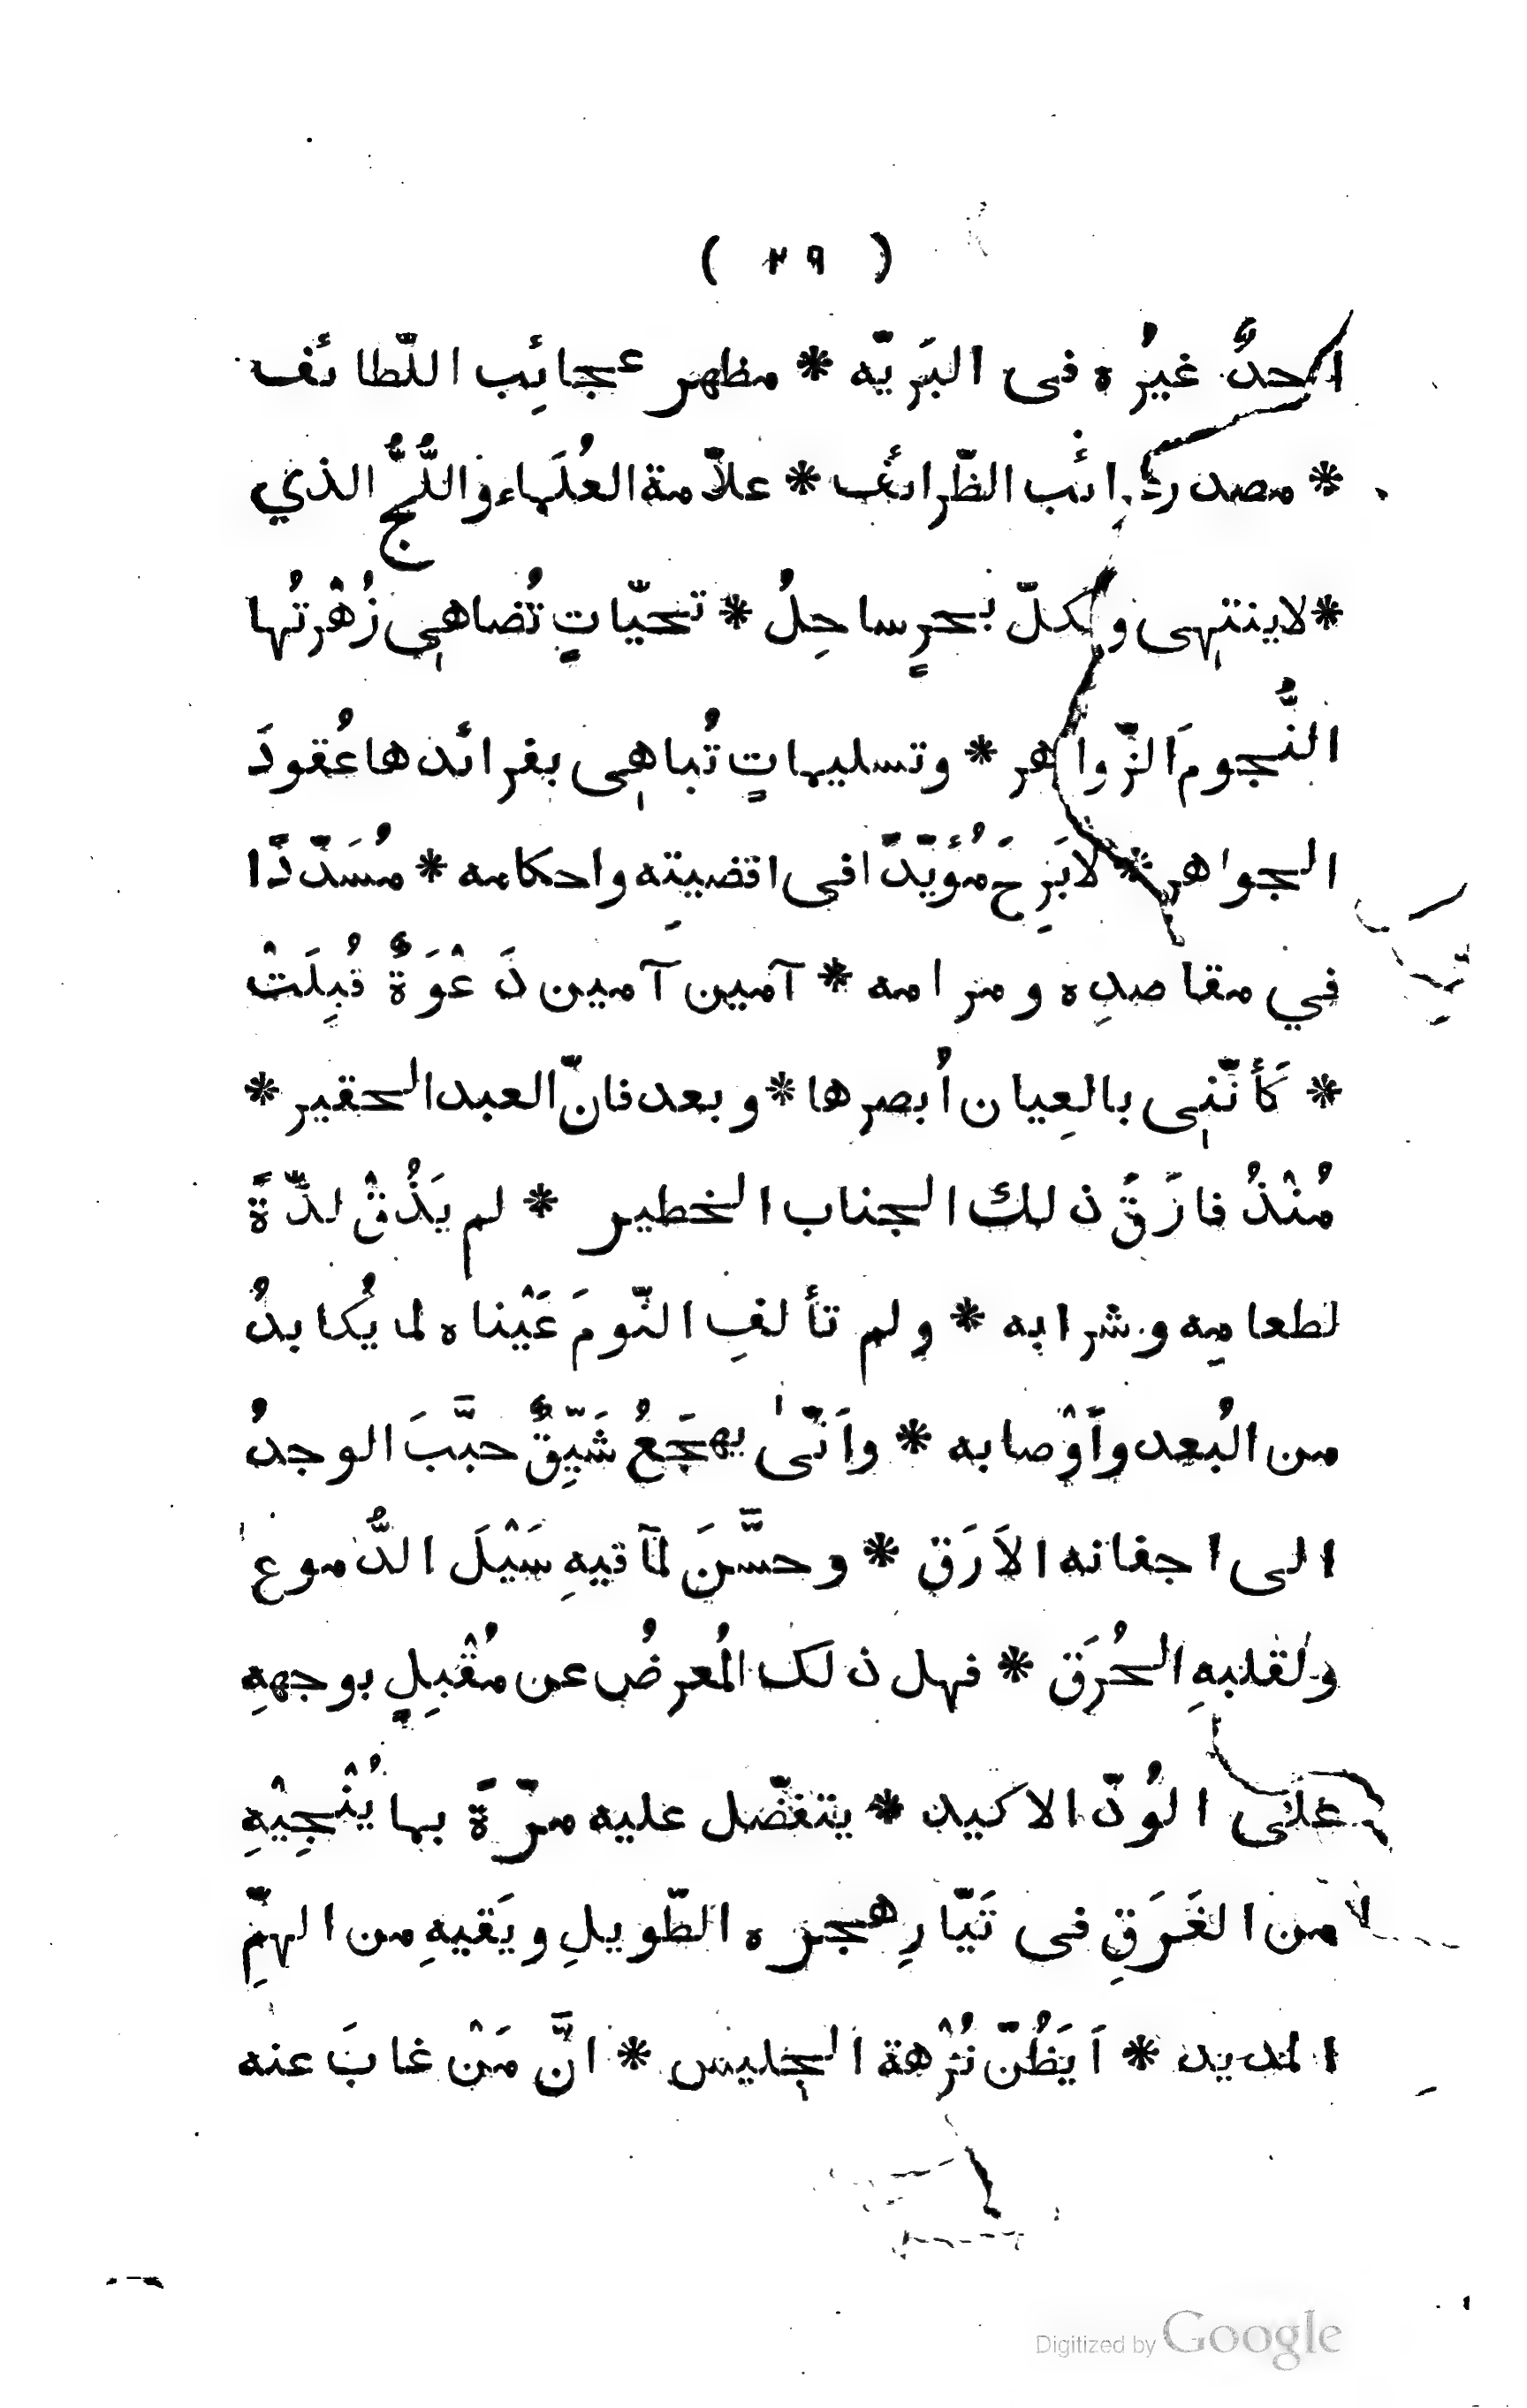 ( ٢٩ )
احدٌ غيرُه فى البَريّه * مظهر عجائِب اللّطائف
* مصدر غرائب الظّرائف * علّامة العُلَماء واللُّجُّ الذي
* لاينتهى ولكلّ بحرٍ ساحِلُ * تحيّاتٍ تُضاهِى زُهْرتُها
النُّجومَ الزّواهر * وتسليماتٍ تُباهِى بفرائدها عُقودَ
الجواهر * لابَرِحَ مُؤَيّدًا فى اقضيتِه واحكامه * مُسَدّدًا
في مقاصدِه ومرامه * آمين آمين دَعْوَةٌ قُبِلَتْ
* كَأنّنِى بالعِيان اُبصرها * وبعد فانّ العبد الحقير *
مُنْذُ فارَقَ ذلك الجناب الخطير * لم يَذُقْ لذّةً
لطعامِه وشرابه * ولم تألفِ النّومَ عَيْناه لما يُكابدُ
من البُعد واَوْصابه * واَنّىٰ يهجَعُ شَيِّقٌ حبَّبَ الوجدُ
الى اجفانه الاَرَق * وحسَّنَ لمآقيهِ سَيْلَ الدُّموع
ولقلبهِ الحُرَق * فهل ذلك المُعرضُ عن مُقْبِلٍ بوجههِ
علَى الوُدّ الاكيد * يتفضّل عليه مرّةً بما يُنْجِيْهِ
من الغَرَقِ فى تَيّارِ هجره الطّويلِ ويَقيهِ من الهمِّ
المديد * اَيَظُنّ نُزْهة الجليس * انَّ مَنْ غابَ عنه
Digitized by Google